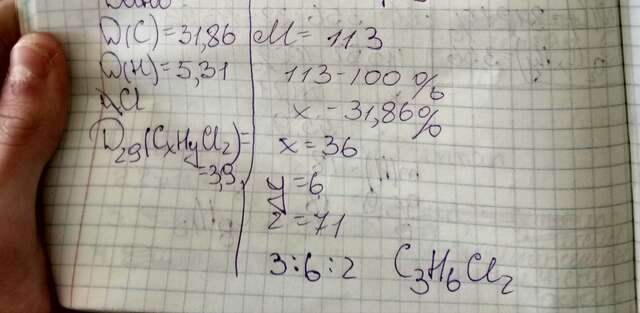 Дано:
D(C)=31,86
D(H)=5,31
Cl
D29(CxHyClz)=
=3,9
M = 113
113-100%
x - 31,86%
x = 36
y = 6
z = 71
3:6:2 C3H6Cl2